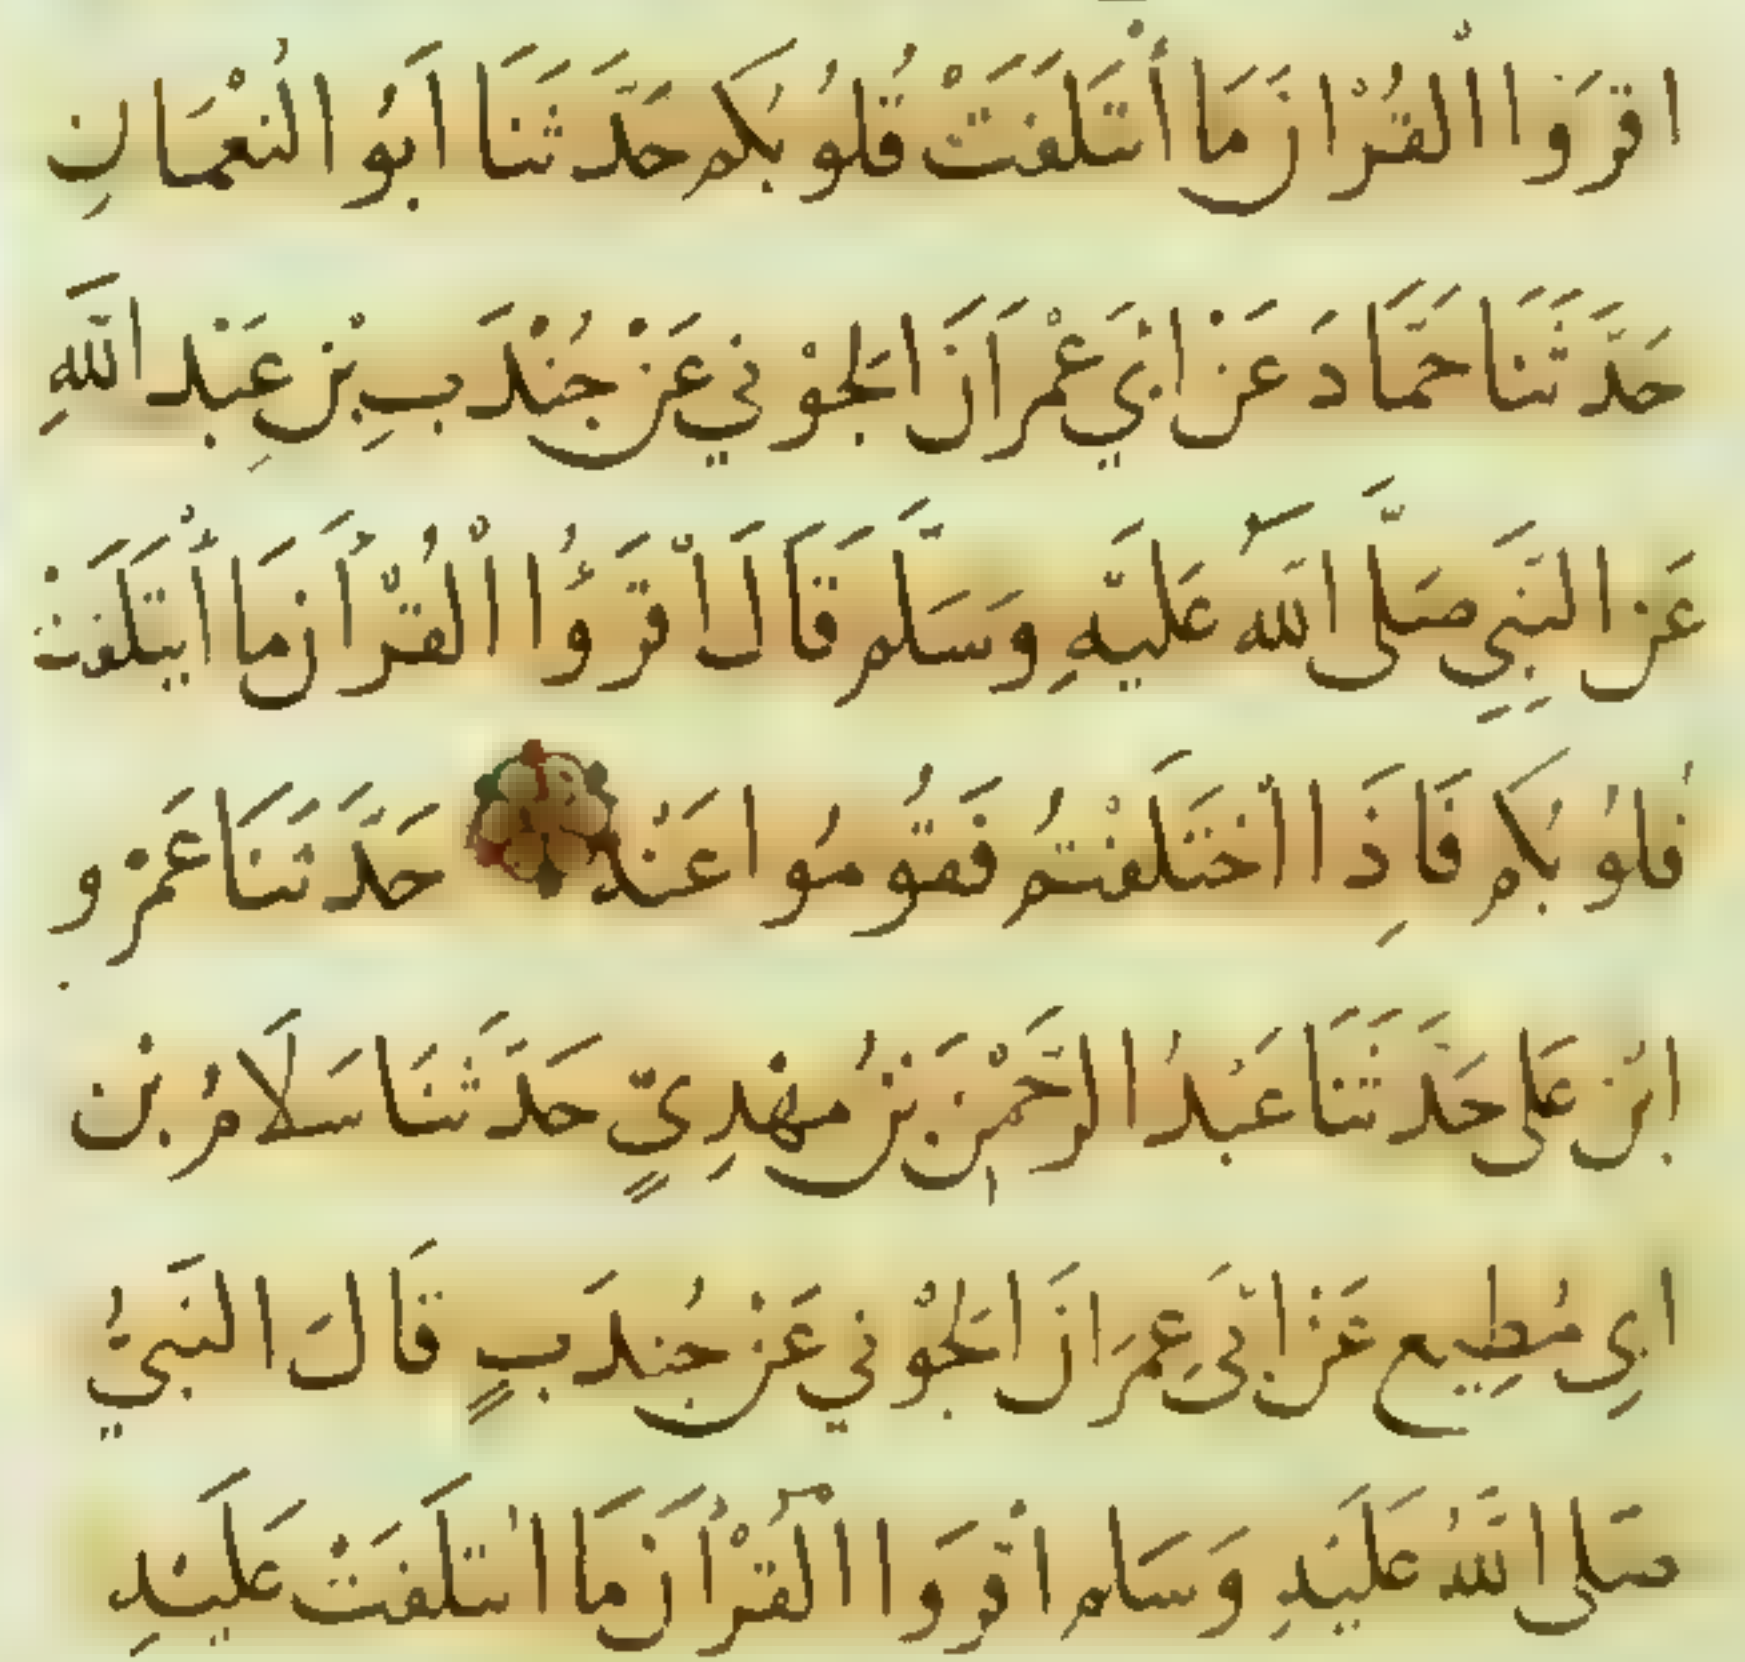 اقرَوا الْقُرْانَ مَا أْتَلَفَتْ قُلُوبُكم حَدَّثَنَا اَبُو النُعْمَانِ
حَدَّثَنَا حَمَّاد عَنْ ابِي عِمْرَانَ الجَوْنِي عَنْ جُنْدَبِ بْنِ عَبْدِ اللَّهِ
عَن النَّبِيِ صَلَّى اللَّه عَلَيْهِ وَسَلَّم قَالَ اْقرَؤُا الْقُرْأَن مَا أْيتَلَفَتْ
قُلوُبُكم فَاِذَا اخْتَلَفْتُم فَقُومُوا عَنْه حَدَّثَنَا عَمْرو
ابْن عَلى حَدَّثَنَا عَبْدُ الرَّحْمٰنِ بْنُ مهْدِيٍّ حَدَّثَنَا سَلَامُ بْن
ابِي مُطِيع عَنْ ابِى عِمرَانَ الجَوْنِي عَنْ جُندَبٍ قَالَ النَبيُّ
صَلى اللَّهُ عَلَيْهِ وَسَلم اقْرَوا الْقُرْأَنَ مَا ائتَلَفَتْ عَلَيْهِ